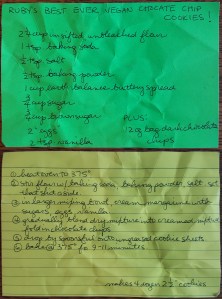 RUBY'S BEST EVER VEGAN CHOCOLATE CHIP
COOKIES!
2 1/4 cup unsifted unbleached flour
1 tsp baking soda
1/2 tsp salt
1/2 tsp baking powder
1 cup earth balance buttery spread
3/4 cup sugar
3/4 cup brown sugar
2 "eggs"
2 tsp vanilla
PLUS:
12 oz bag dark chocolate
chips
① heat oven to 375°
② mix flour, baking soda, baking powder, salt. set
that shit aside.
③ in large mixing bowl, cream margarine with
sugars, eggs, vanilla
④ gradually blend dry mixture into creamed mixture
fold in chocolate chips
⑤ drop by spoonful onto ungreased cookie sheets
⑥ bake @ 375° for 9-11 minutes
makes 4 dozen 2 1/2" cookies